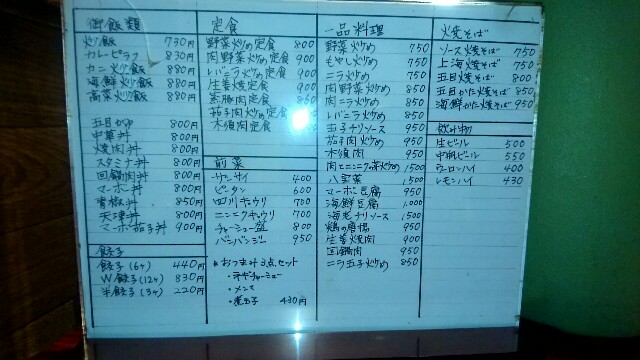 御飯類
炒飯 730円
カレーピラフ 830円
カニ炒飯 880円
海鮮炒飯 880円
高菜炒飯 880円
五目がゆ 800円
中華丼 800円
焼肉丼 800円
スタミナ丼 800円
回鍋肉丼 800円
マーボー丼 800円
青椒丼 850円
天津丼 800円
マーボ茄子丼 900円
餃子
餃子(6ヶ) 440円
W餃子(12ヶ) 830円
半餃子(3ヶ) 220円
定食
野菜炒め定食 800
肉野菜炒め定食 900
レバニラ炒め定食 900
生姜焼定食 900
茄子肉炒め定食
木須肉定食
前菜
ザーサイ 400
ピータン 600
四川キュウリ 700
ニンニクキュウリ 700
チャーシュー盛 800
バンバンジー 950
*おつまみ3点セット
・ネギチャーシュー
・メンマ
・煮玉子 430円
一品料理
野菜炒め 750
もやし炒め 750
ニラ炒め 750
肉野菜炒め 850
肉ニラ炒め 850
レバニラ炒め 850
玉子チリソース 900
茄子肉炒め 950
木須肉 900
肉とニンニク茎炒め 1500
八宝菜 1500
マーボ豆腐 950
海鮮豆腐 1,000
海老チリソース 1500
鶏の唐揚 950
生姜焼肉 900
回鍋肉 950
ニラ玉子炒め 850
焼そば
ソース焼そば 750
上海焼そば 750
五目焼そば 800
五目かた焼そば 850
海鮮かた焼そば 950
飲み物
生ビール 500
中瓶ビール 550
ウーロンハイ 400
レモンハイ 430